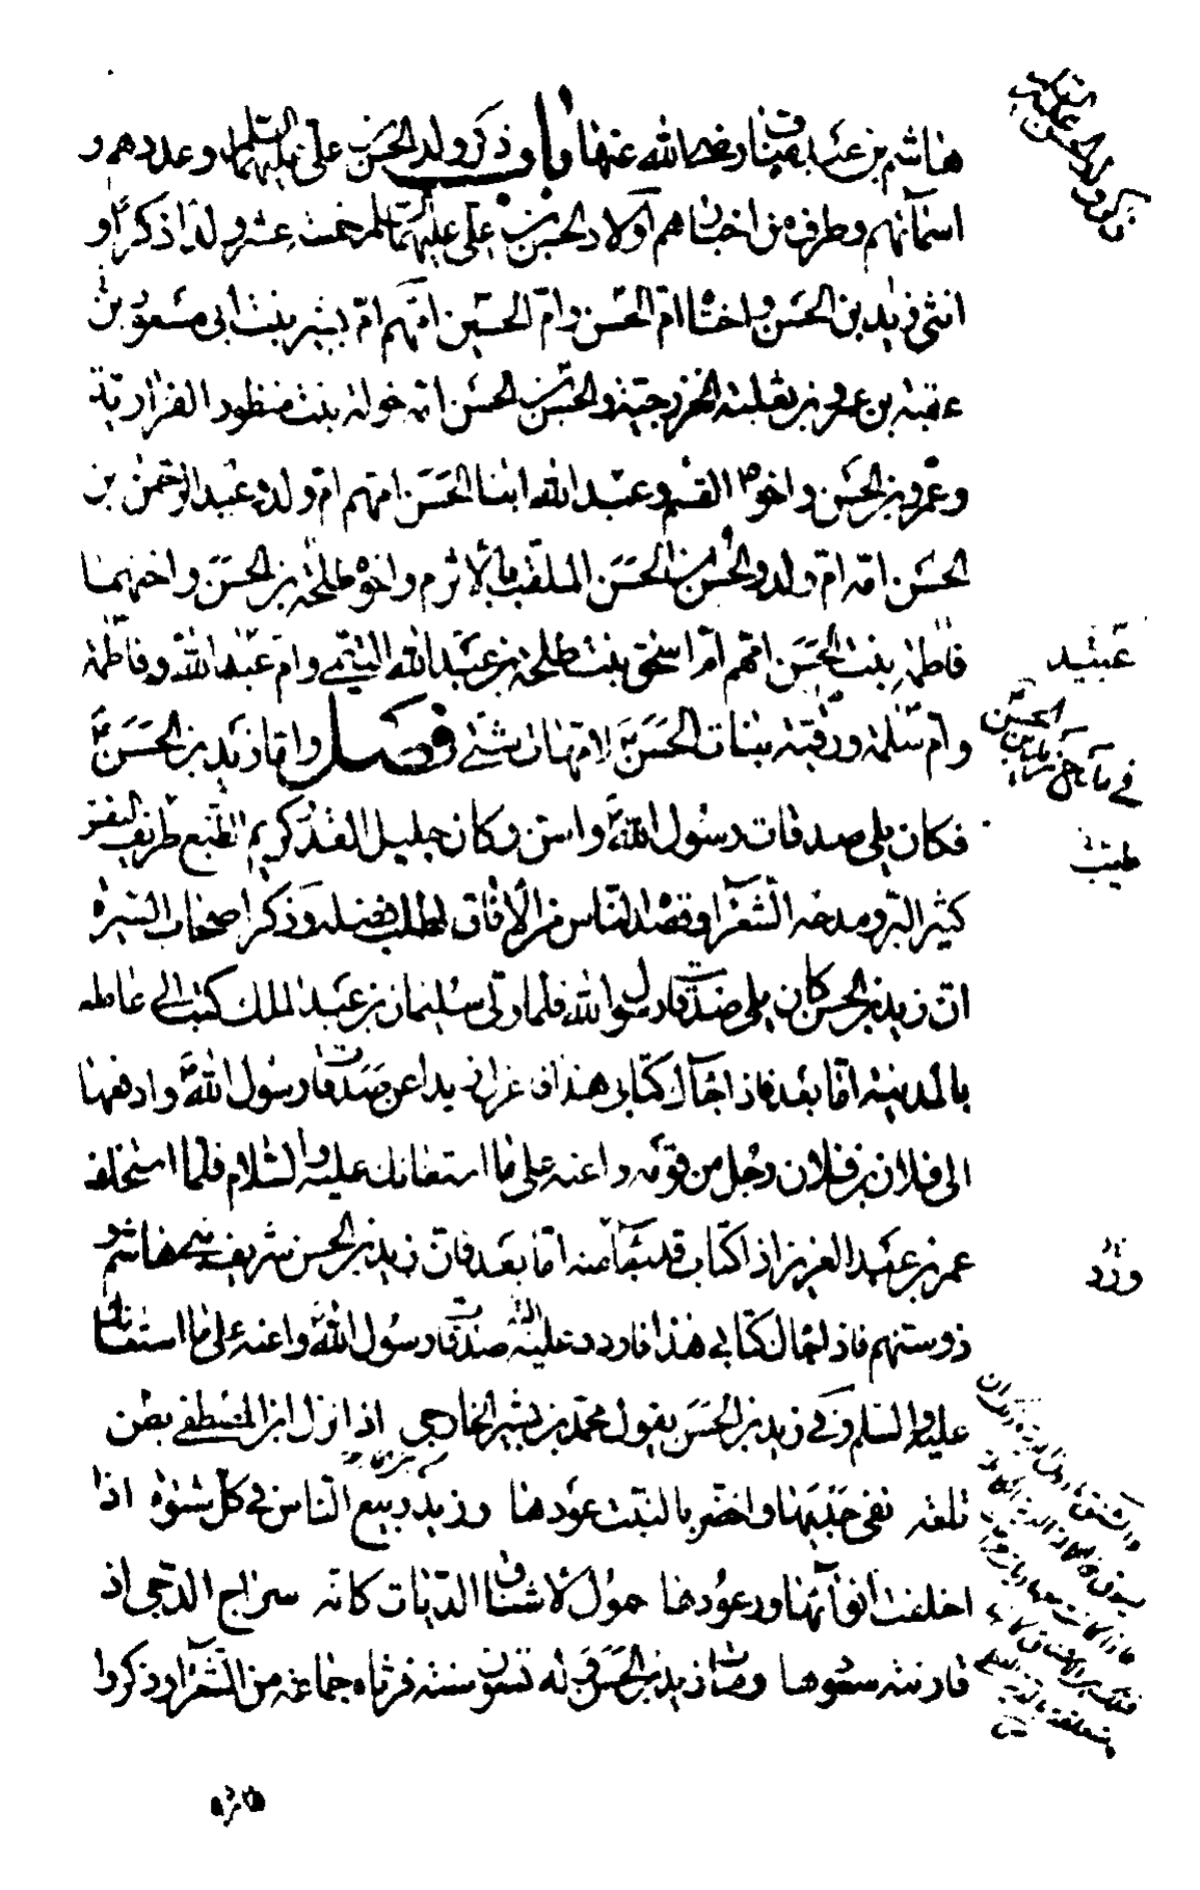 هاشم بن عبد مناف رضی الله عنها باب ذكر ولد الحسن بن علی علیهما السلم و عددهم و
اسمآئهم و طرف من اخبارهم اولاد الحسن بن علی علیهما السلم خمسة عشر ولدا ذكرا و
انثی زید بن الحسن و اختاه ام الحسن و ام الحسین امهم ام بشیر بنت ابی مسعود بن
عقبة بن عمرو بن ثعلبة الخزرجیة و الحسن بن الحسن امه خولة بنت منظور الفزاریة
و عمرو بن الحسن و اخواه القسم و عبد الله ابنا الحسن امهم ام ولد و عبد الرحمن بن
الحسن امه ام ولد و الحسین بن الحسن الملقب بالاثرم و اخوه طلحة بن الحسن و اختهما
فاطمة بنت الحسن امهم ام اسحق بنت طلحة بن عبد الله التیمی و ام عبد الله و فاطمة
و ام سلمة و رقیة بنات الحسن لامهات شتی فصل و اما زید بن الحسن
فكان یلی صدقات رسول الله و اسن و كان جلیل القدر كریم الطبع ظریف النفس
كثیر البر و مدحه الشعرآء و قصده الناس من الافاق لطلب فضله و ذكر اصحاب السیرة
ان زید بن الحسن كان یلی صدقات رسول الله فلما ولی سلیمان بن عبد الملك كتب الی عامله
بالمدینة اما بعد فاذا جآءك كتابی هذا فاعزل زیدا عن صدقات رسول الله و ادفعها
الی فلان بن فلان رجل من قومه و اعنه علی ما استعانك علیه و السلام فلما استخلف
عمر بن عبد العزیز اذا كتاب قد جآء منه اما بعد فان زید بن الحسن شریف بنی هاشم و
ذو سنهم فاذا جآءك كتابی هذا فاردد علیه صدقات رسول الله و اعنه علی ما استعانك
علیه و السلم و فی زید بن الحسن یقول محمد بن بشیر الخارجی اذا نزل ابن المصطفی بطن
تلعة نفی جدبها و اخضر بالنبت عودها و زید ربیع الناس فی كل شتوة اذا
اخلفت انوآئها و رعودها حمول لاشناق الدیات كانه سراج الدجی اذ
قارنته سعودها و مات زید بن الحسن و له تسعون سنة فرثاه جماعة من الشعرآء و ذكروا
ذكر ولد الحسن بن علی
عبید
طیب
ورد
مآثره